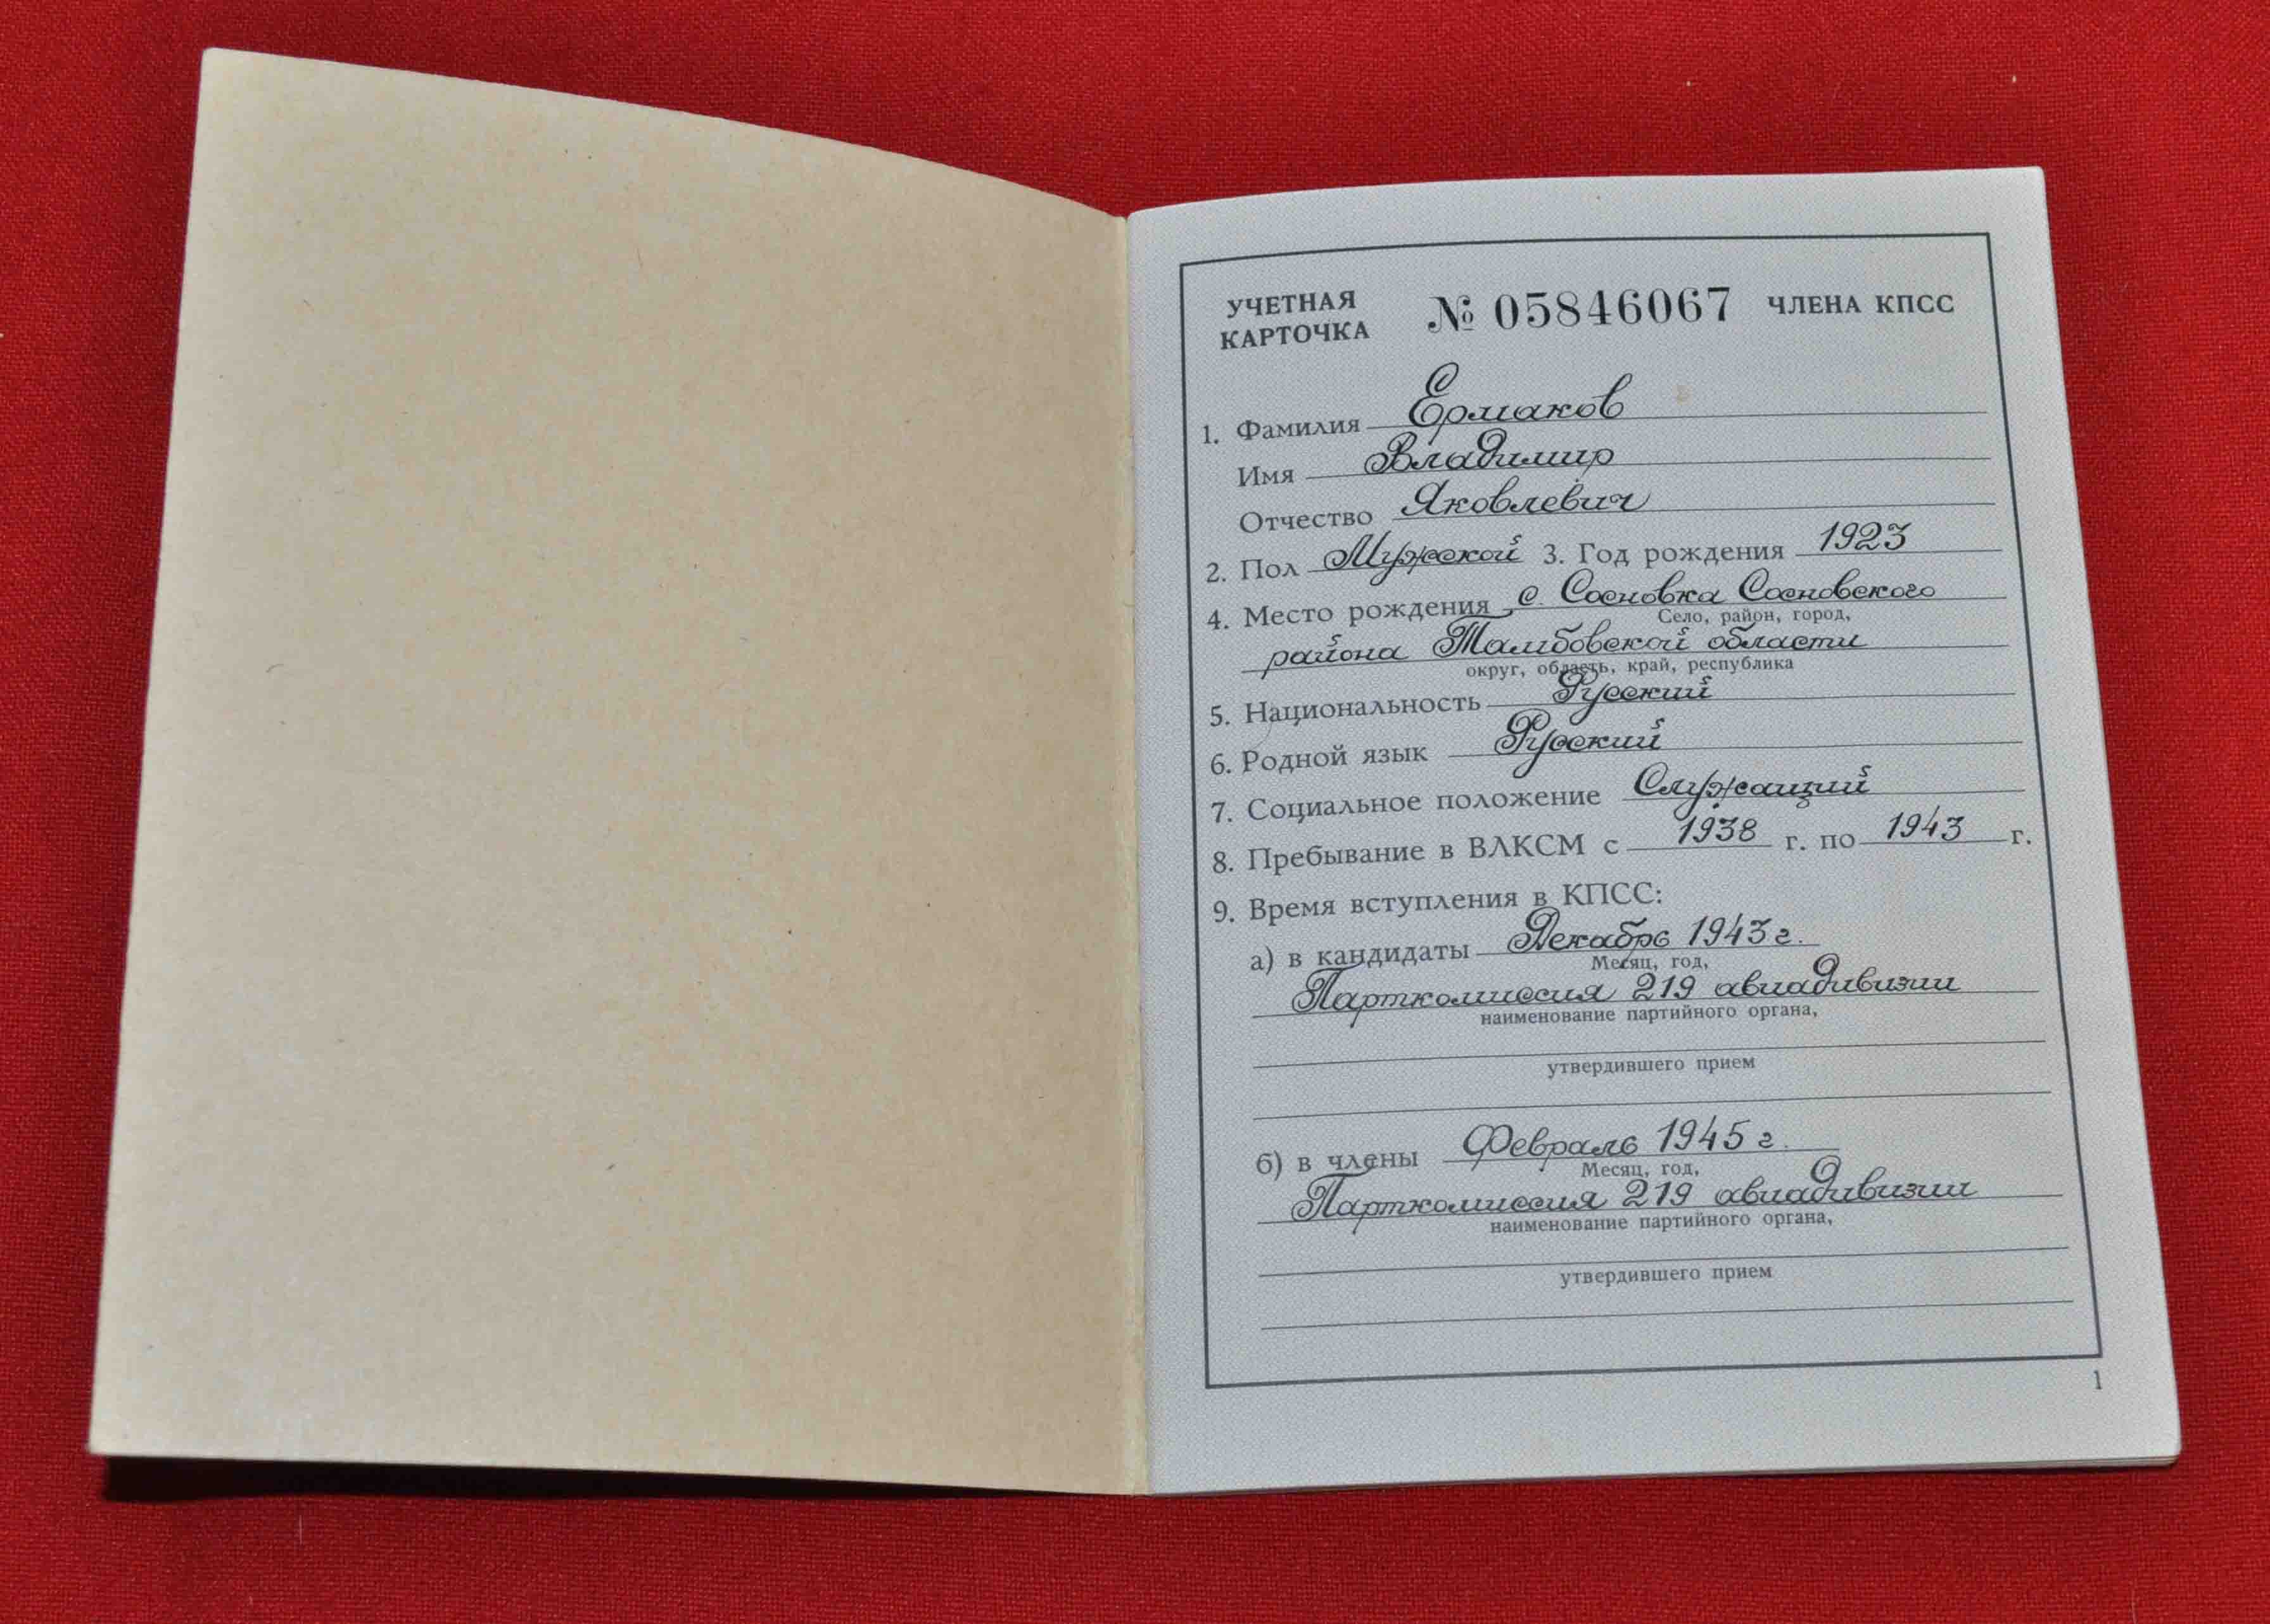 УЧЕТНАЯ КАРТОЧКА № 05846067 ЧЛЕНА КПСС
1. Фамилия Ермаков
Имя Владимир
Отчество Яковлевич
2. Пол Мужской 3. Год рождения 1923
4. Место рождения с. Сосновка Сосновского
Село, район, город,
района Тамбовской области
округ, область, край, республика
5. Национальность Русский
6. Родной язык Русский
7. Социальное положение Служащий
8. Пребывание в ВЛКСМ с 1938 г. по 1943 г.
9. Время вступления в КПСС:
а) в кандидаты Декабрь 1943 г.
Месяц, год,
Парткомиссия 219 авиадивизии
наименование партийного органа,
утвердившего прием
б) в члены Февраль 1945 г.
Месяц, год,
Парткомиссия 219 авиадивизии
наименование партийного органа,
утвердившего прием
1